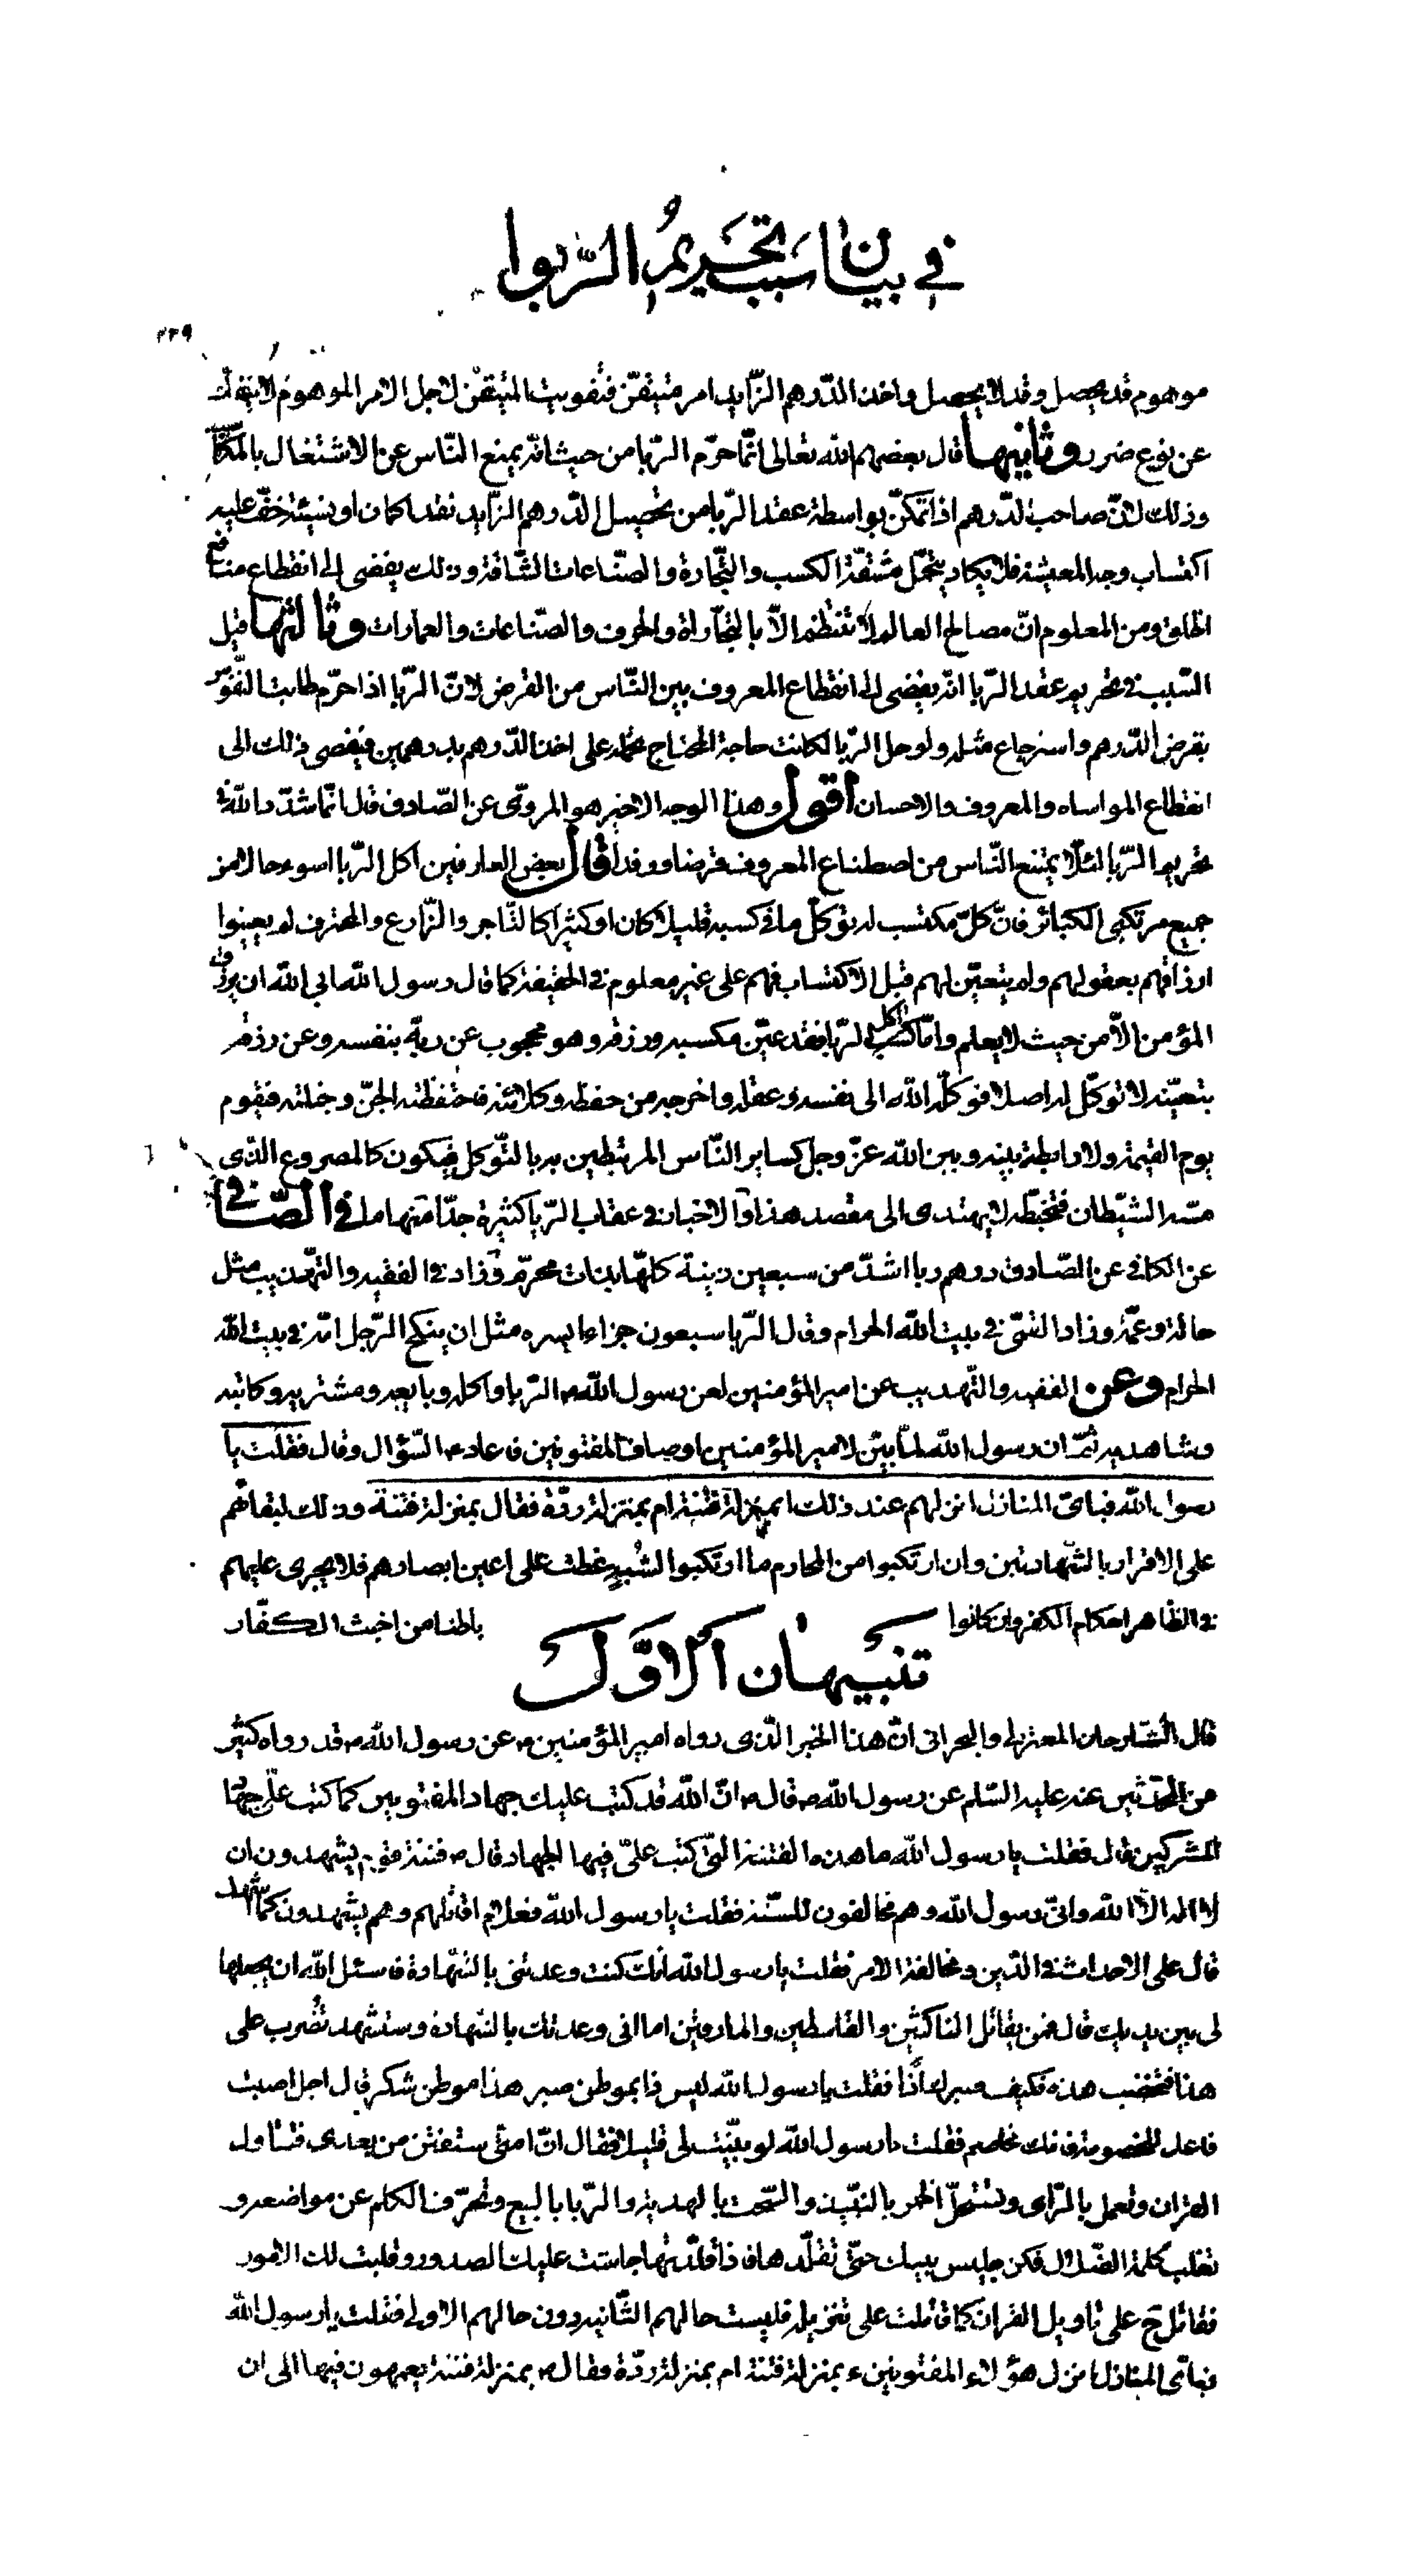 في بيان سبب تحريم الربوا
٢٣٩
موهوم قد يحصل وقد لا يحصل واخذ الدّرهم الزّايد امر متيقّن فتفويت المتيقّن لاجل الامر الموهوم لا ينفكّ
عن نوع ضرر وثانيها قال بعضهم الله تعالى انّما حرّم الرّبا من حيث انّه يمنع النّاس عن الاشتغال بالمكاسب
وذلك لانّ صاحب الدّرهم اذا تمكّن بواسطة عقد الرّبا من تحصيل الدّرهم الزّايد نقدا كان او نسيئة خفّ عليه
اكتساب وجه المعيشة فلا يكاد يتحمّل مشقّة الكسب والتّجارة والصّناعات الشّاقة وذلك يفضى الى انقطاع منافع
الخلق ومن المعلوم انّ مصالح العالم لا تنتظم الاّ بالتّجاراة والحرف والصّناعات والعمارات وثالثها قيل
السّبب في تحريم عقد الرّبا انّه يفضى الى انقطاع المعروف بين النّاس من القرض لانّ الرّبا اذا حرّم طابت النّفوس
بقرض الدّرهم واسترجاع مثله ولو حل الرّبا لكانت حاجة المحتاج تحمله على اخذ الدّرهم بدرهمين فيفضى ذلك الى
انقطاع المواساه والمعروف والاحسان اقول وهذا الوجه الاخير هو المروىّ عن الصّادق قال انّما شدّد الله في
تحريم الرّبا لئلّا يمتنع النّاس من اصطناع المعروف قرضا ورفدا قال بعض العارفين اكل الرّبا اسوء حالا من
جميع مرتكبى الكبائر فانّ كلّ مكتسب له توكّل ما في كسبه قليلا كان او كثيرا كالتّاجر والزّارع والمحترف لم يعينوا
ارزاقهم بعقولهم ولم يتعيّن لهم قبل الاكتساب فهم على غير معلوم في الحقيقة كما قال رسول الله ابى الله ان يرزق
المؤمن الاّ من حيث لا يعلم وامّا اكل الرّبا فقد عيّن مكسبه ورزقه وهو محجوب عن ربّه بنفسه وعن رزقه
بتعيّنه لا توكّل له اصلا فوكّله الله الى نفسه وعقله واخرجه من حفظه وكلائته فاختطفته الجنّ وخبلته فيقوم
يوم القيمة ولا رابطة بينه وبين الله عزّ وجل كساير النّاس المرتبطين به بالتّوكل فيكون كالمصروع الذّى
مسّه الشّيطان فتخبّطه لا يهتدى الى مقصد هذا والاخبار في عقاب الرّبا كثيرة جدّا منها ما في الصّافي
عن الكافي عن الصّادق درهم ربا اشدّ من سبعين زنية كلّها بذات محرم وزاد في الفقيه والتهذيب مثل
خالة وعمّة وزاد القمّى في بيت الله الحرام وقال الرّبا سبعون جزاء ايسره مثل ان ينكح الرّجل امّه في بيت الله
الحرام وعن الفقيه والتّهذيب عن امير المؤمنين لعن رسول الله ص الرّبا واكله وبايعه ومشتريه وكاتبه
وشاهديه ثمّ ان رسول الله لمّا بيّن لامير المؤمنين اوصاف المفتونين فاعاد ع السّؤال وقال فقلت يا
رسول الله فبأىّ المنازل انزلهم عند ذلك ابمنزلة فتنة ام بمنزلة ردّة فقال بمنزلة فتنة وذلك لبقائهم
على الاقرار بالشّهادتين وان ارتكبوا من المحارم ما ارتكبوا لشُبهٍ غطت على اعين ابصارهم فلا يجرى عليهم
في الظّاهر احكام الكفر وان كانوا باطنا من اخبث الكفّار
تنبيهان الاوّل
قال الشّارحان المعتزلى والبحرانى انّ هذا الخبر الذّى رواه امير المؤمنين ع عن رسول الله ص قد رواه كثير
من المحدّثين عنه عليه السّلم عن رسول الله ص قال ص انّ الله قد كتب عليك جهاد المفتونين كما كتب علىّ جهاد
المشركين قال فقلت يا رسول الله ما هذه الفتنة الّتى كتب علىّ فيها الجهاد قال ص فتنة قوم يشهدون ان
لا اله الاّ الله وانّى رسول الله وهم مخالفون للسّنة فقلت يا رسول الله فعلام اقاتلهم وهم يشهدون كما اشهد
قال على الاحداث في الدّين ومخالفة الامر فقلت يا رسول الله انّك كنت وعدتنى بالشّهادة فاسئل الله ان يجعلها
لى بين يديك قال فمن يقاتل الناكثين والقاسطين والمارقين اما انى وعدتك بالشّهادة وستشهد تُضرب على
هذا فتخضب هذه فكيف صبرك اذًا فقلت يا رسول الله ليس ذا بموطن صبر هذا موطن شكر قال اجل اصبت
فاعد للخصومة فانك مخاصم فقلت يا رسول الله لو بيّنت لى قليلا فقال انّ امتى ستفتن من بعدى فتتأول
القران وتعمل بالرّاى وتستحلّ الخمر بالنّبيذ والسّحت بالهدية والرّبا بالبيع وتحرّف الكلم عن مواضعه و
تغلب كلمة الضّلال فكن جليس بيتك حتّى تقلّدها فاذا قلّدتها جاشت عليك الصدور وقلبت لك الامور
فقاتل ح على تأويل القران كما قاتلت على تنزيله فليست حالهم الثّانية دون حالهم الاولى فقلت يا رسول الله
فبأىّ المنازل انزل هؤلاء المفتونين ء بمنزلة فتنة ام بمنزلة ردّة فقال ص بمنزلة فتنة يعمهون فيها الى ان